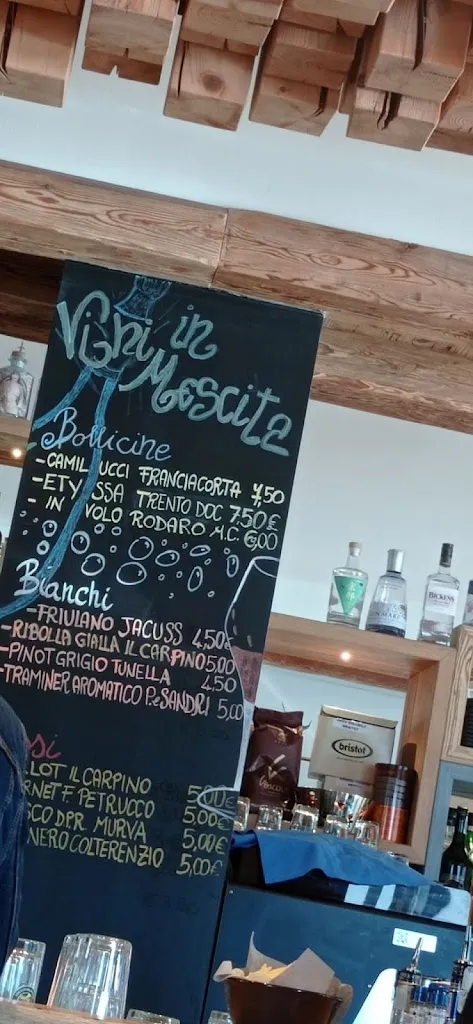 Vini in
Mescita
Bollicine
- CAMIL UCCI FRANCIACORTA 7,50
- ETYSSA TRENTO DOC 7,50€
- IN VOLO RODARO M.C. 6,00
Bianchi
- FRIULANO JACUSS 4,50€
- RIBOLLA GIALLA IL CARPINO 5,00
- PINOT GRIGIO TUNELLA 4,50
- TRAMINER AROMATICO P.e SANDRI 5,00
si
LLOT IL CARPINO 5,00€
RNET F. PETRUCCO 5,00€
SCO DPR. MURVA 5,00€
NERO COLTERENZIO 5,00€
bristot